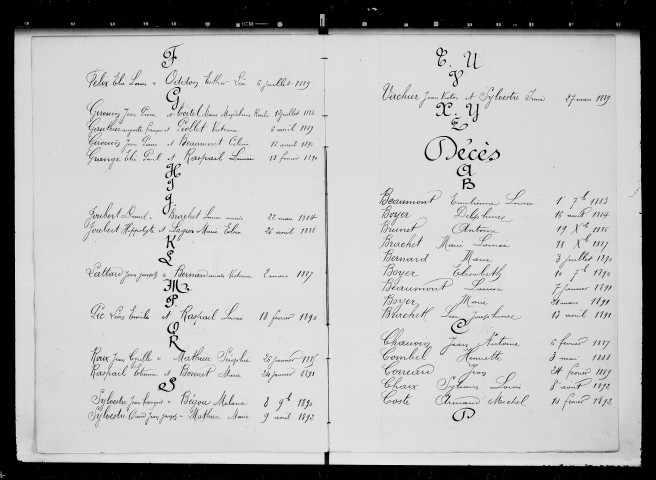 F
Felix Elie Louis & Oddon Esther Léa 6 juillet 1889
G
Girouin Jean Pierre et Martel Marie Magdeleine 1 juillet 1883
Gauthier Auguste François et Piollet Victorine 6 avril 1889
Girouin Jean Pierre et Beaumont Céline 12 avril 1890
Grange Elie Paul et Raspail Louise 18 février 1890
H
I
J
Joubert Daniel & Brachet Louise 22 mai 1884
Joubert Hippolyte et Lagier Marie Elise 26 avril 1888
K
L
Lattard Jean Joseph & Bernard Victorine 2 mars 1887
M
P
Pic Louis Emile et Raspail Louise 18 février 1890
Q
R
Roux Jean Cyrille & Mathieu 26 janvier 1885
Raspail Etienne et Bonnet Marie 24 janvier 1891
S
Sylvestre Jean François & Bégou Mélanie 8 9b 1890
Sylvestre Jean Joseph & Mathieu Marie 9 avril 1892
T U
V
Vachier Jean Victor et Sylvestre 27 mars 1889
X Y
Z
Décès
A
B
Beaumont Emilienne Louise 1 7b 1883
Boyer Delphine 16 avril 1884
Brunet Antoine 19 Xb 1886
Brachet Marie Louise 18 Xb 1887
Bernard Marie 3 juillet 1890
Boyer Elisabeth 10 7b 1890
Beaumont Louise 7 janvier 1891
Boyer Marie 24 mars 1891
Burchet Joséphine 13 avril 1891
C
Chauvin Jean Antoine 6 février 1887
Combel Henriette 3 mai 1888
Correard Jean 24 février 1889
Chaix Sylvain Louis 8 avril 1892
Coste Armand Michel 10 février 1892
D